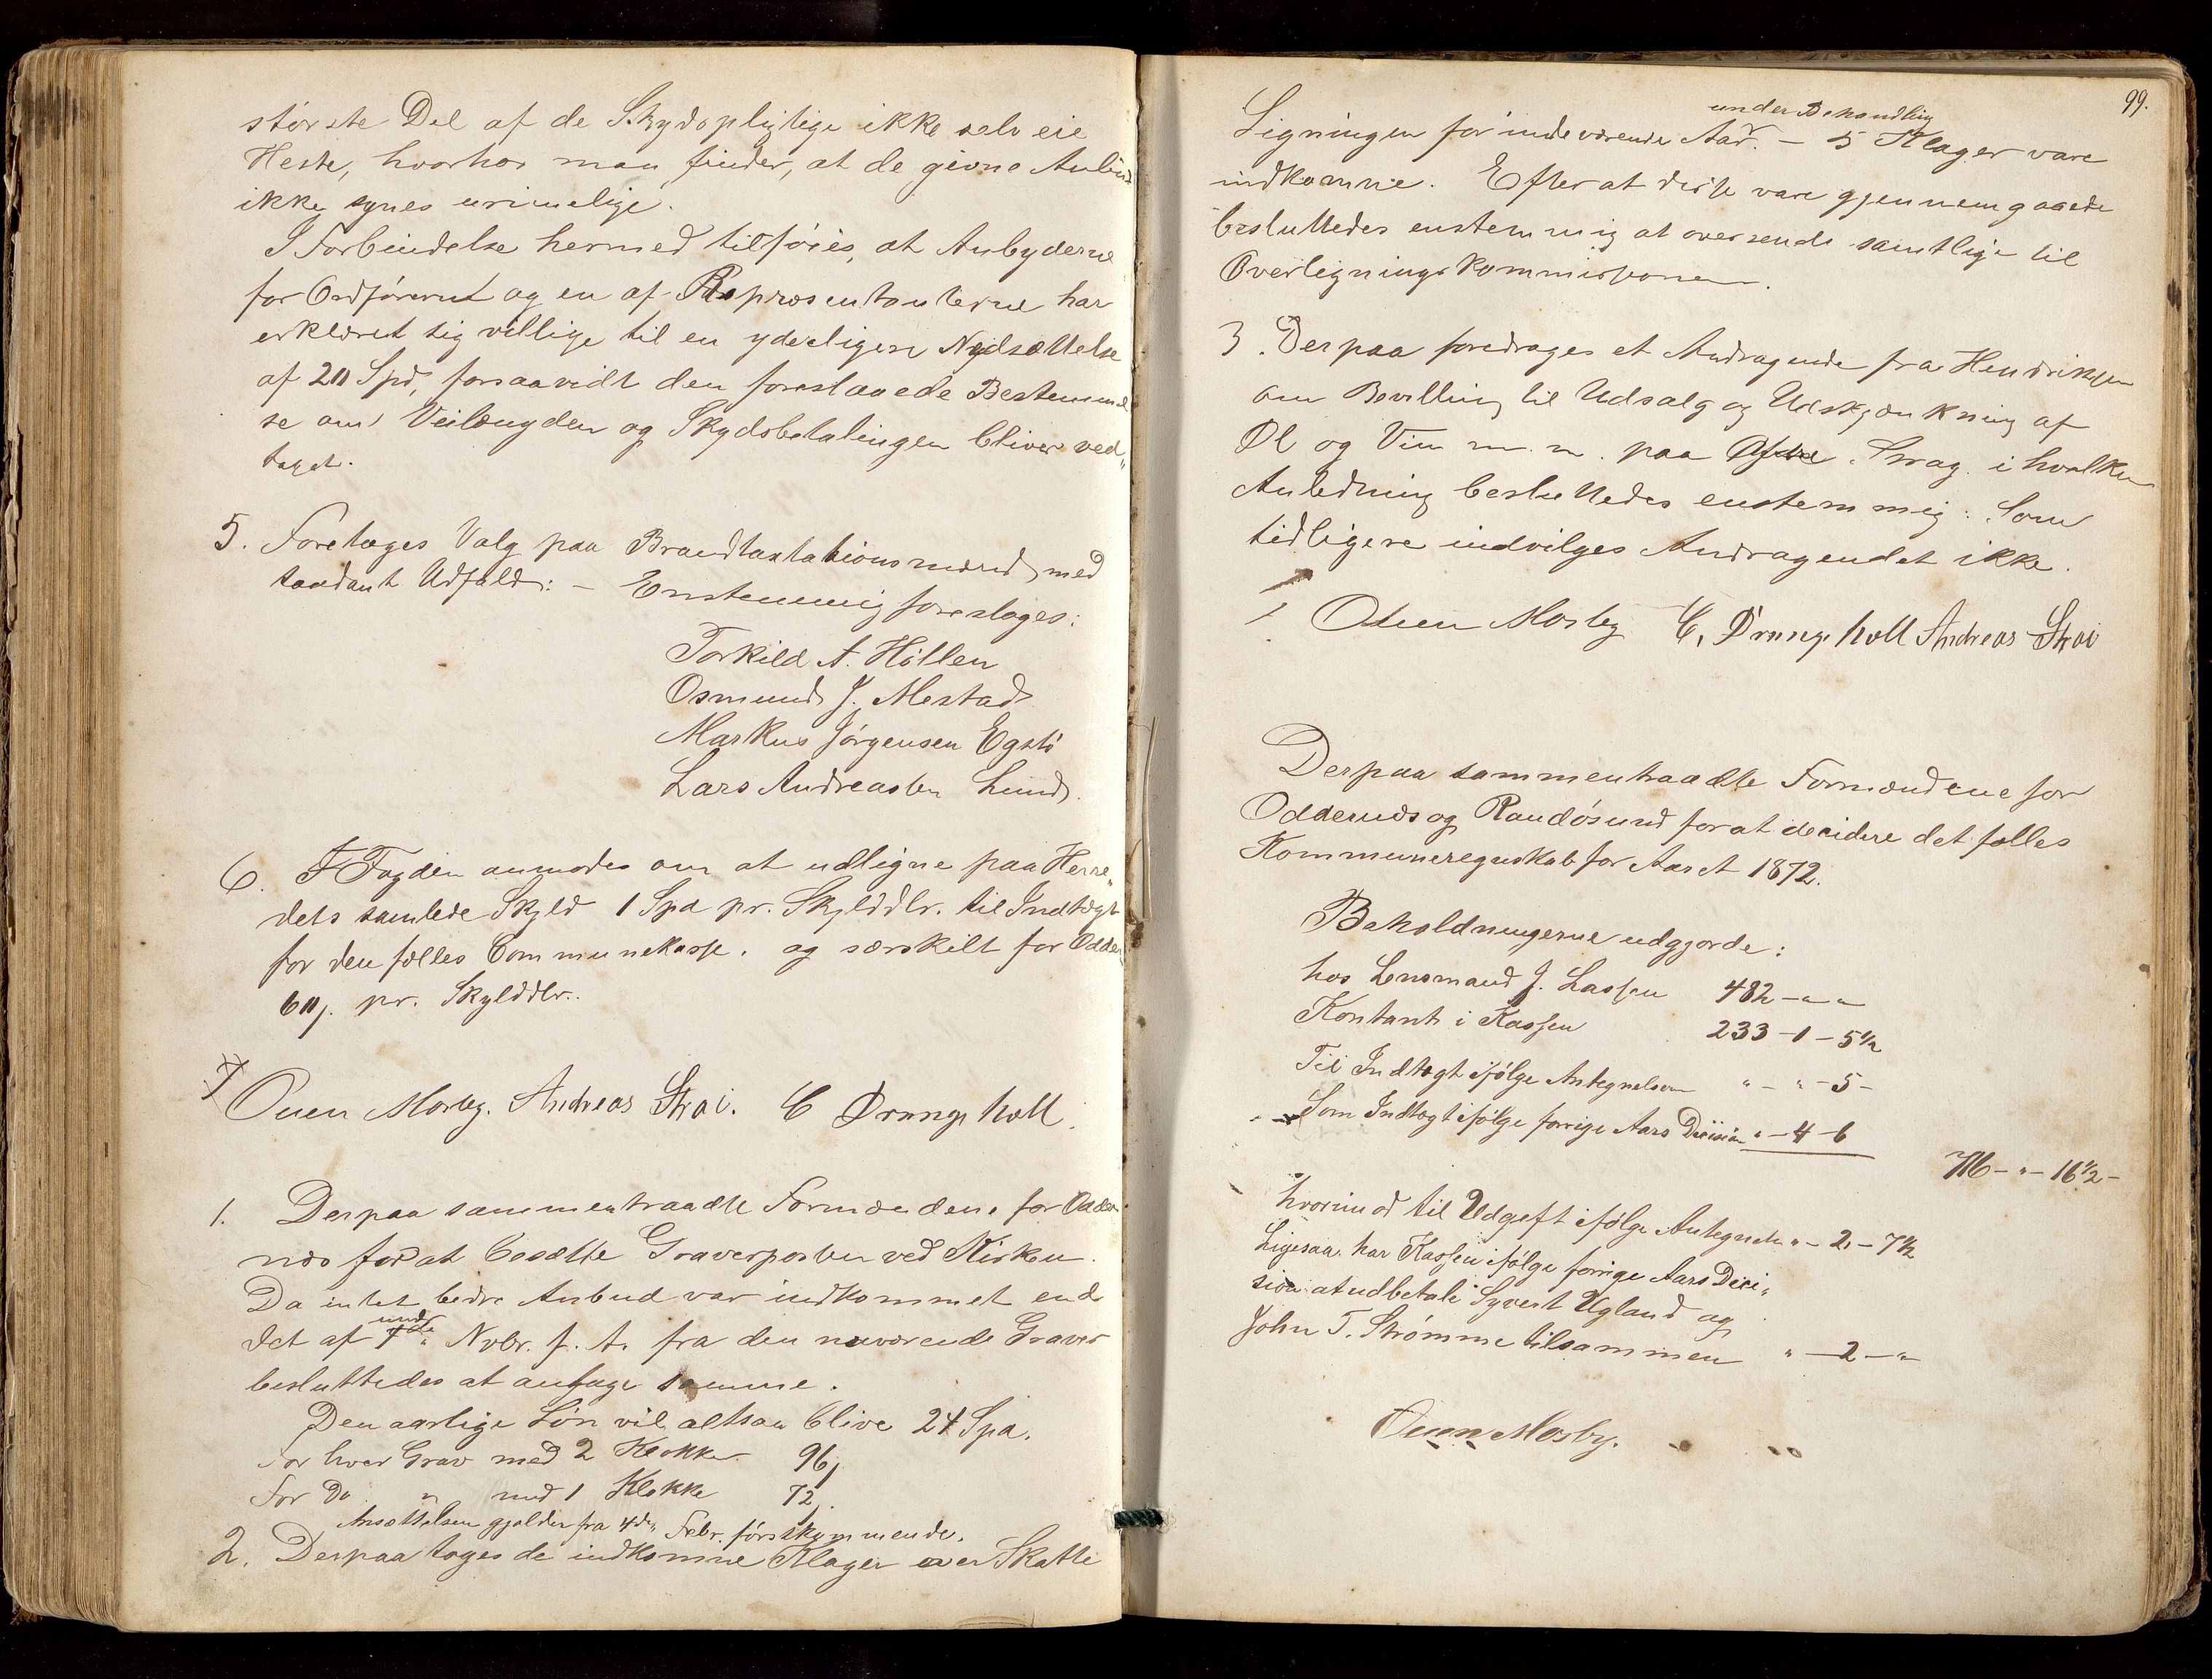 største Del af de Skydspligtige ikke selv eie
Heste, hvorhos man finder, at de givne Anbud
ikke synes urimelige.
I Forbindelse hermed tilføies, at Anbyderne
for Ordføreren og en af Repræsentanterne har
erklæret sig villige til en yderligere Nedsættelse
af 20 Spd, forsaavidt den foreslaaede Bestemmel
se om Veilængden og Skydsbetalingen bliver ved„
taget.
5. Foretoges Valg paa Brandtaxtationsmænd med
saadant Udfald: – Enstemmig foresloges:
Torkild A. Höllen
Osmund J. Mestad
Markus Jörgensen Egstö
Lars Andreassen Lund.
6. Fogden anmodes om at udligne paa Herre„
dets samlede Skyld 1 Spd pr. Skylddlr. til Indtægt
for den fælles Communekasse. og særskilt for Odder
60 ſ. pr. Skylddlr..
Ouen Mosby. Andreas Strai. C Drangsholt.
1. Derpaa sammentraadte Formændene for Odder
næs for at besætte Graverposten ved Kirken.
Da intet bedre Anbud var indkommet end
det af Nvbr. f. A. fra den nuværende Graver
besluttedes at antage samme.
Den aarlige Løn vil altsaa blive 24 Spd.
For hver Grav med 2 Klokker 96 ſ
For Do " med 1 Klokke 72 ſ.
Ansættelsen gjælder fra 4de Febr. førstkommende.
2. Derpaa toges de indkomne Klager over Skatte
99.
under Behandling
Ligningen for indeværende Aar. – 5 Klager vare
indkomne. Efterat disse vare gjennemgaaede
besluttedes enstemmig at oversende samtlige til
Overligningskommissionen.
3. Derpaa foredroges et Andragende fra Henriksen
om Bevilling til Udsalg og Udskjænkning af
Øl og Vin m. m. paa Strag. i hvilken
Anledning besluttedes enstemmig: Som
tidligere indvilges Andragendet ikke.
Ouen Mosby C. Drangsholt Andreas Strai
Derpaa sammentraadte Formændene for
Oddernæs og Randøsund for at decidere det fælles
Kommuneregnskab for Aaret 1872.
Beholdningerne udgjorde:
hos Lensmand J. Lassen 482 – " "
Kontant i Kassen 233 – 1 – 5 1/2
Til Indtægt ifølge Antegnelsen " – " – 5 –
Som Indtægt ifølge forrige Aars Decision " – 4 – 6
716 – " – 16 1/2 –
hvorimod til Udgift ifølge Antegnelse " – 2 – 7 1/2
Ligesaa har Kassen ifølge forrige Aars Deci„
sion at udbetale Syvert Ugland og
John T. Strømme tilsammen " – 2 – "
Ouen Mosby.